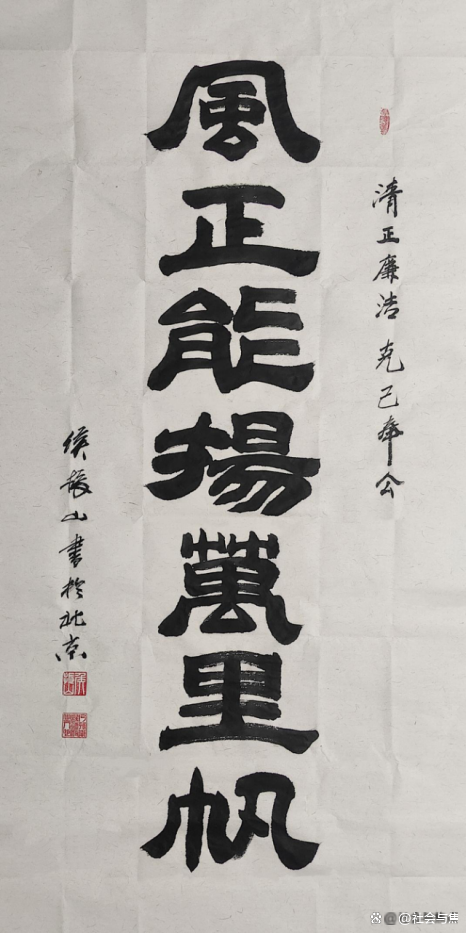 清正廉洁 克己奉公
風正能揚萬里帆
侯振山書於北京
@社会与焦